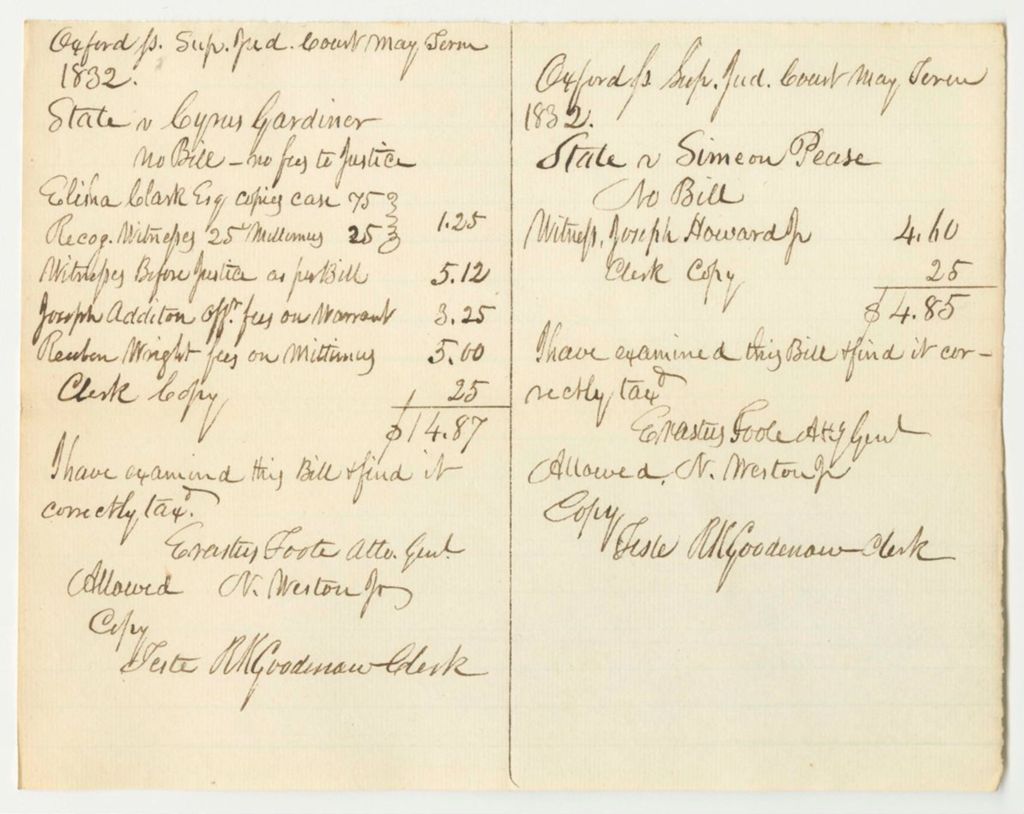 Oxford ss. Sup. Jud. Court May Term
1832.
State v Cyrus Gardiner
No Bill – no fees to Justice
Elisha Clark Esq copies case 75
Recog. Witnesses 25 Mittimus 25 } 1.25
Witnesses Before Justice as per Bill 5.12
Joseph Additon Offr. fees on Warrant 3.25
Reuben Wright fees on Mittimus 5.00
Clerk Copy 25
$14.87
I have examined this Bill & find it
correctly taxd.
Erastus Foote Atto. Genl
Allowed N. Weston Jr
Copy
Teste R K Goodenow Clerk
Oxford ss Sup. Jud. Court May Term
1832.
State v Simeon Pease
No Bill
Witness, Joseph Howard Jr 4.60
Clerk Copy 25
$4.85
I have examined this Bill & find it cor-
rectly taxd
Erastus Foote Atty Genl
Allowed. N. Weston Jr
Copy
Teste R K Goodenow Clerk